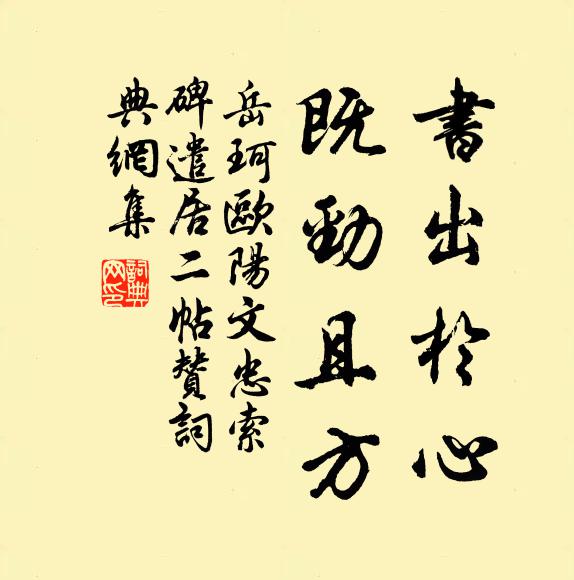 書出於心
既勁且方
岳珂歐陽文忠索
碑遣居二帖贊詞
典網集
詞典
网印